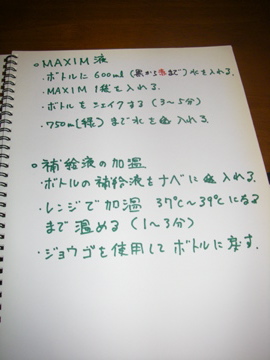 ○MAXIM液
・ボトルに600ml(黒から赤まで)水を入れる.
・MAXIM 1袋を入れる.
・ボトルをシェイクする(3〜5分)
・750ml(緑)まで水を入れる.
○補給液の加温
・ボトルの補給液をナベに入れる.
・レンジで加温 37℃〜39℃になる
まで温める(1〜3分)
・ジョウゴを使用してボトルに戻す.